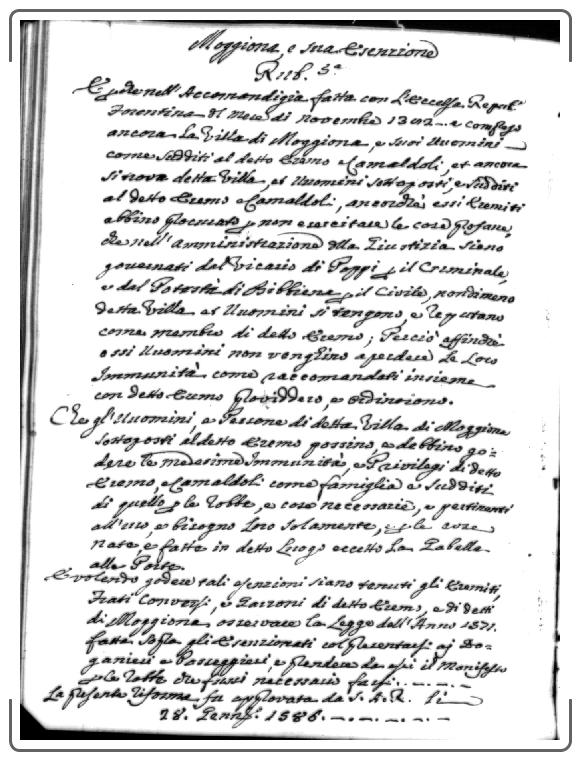 Moggiona, e sua Esenzione
Rub. 3.a
E perche nell'Accomandigia fatta con l'Eccelsa Repub.
Fiorentina del Mese di Novembre 1382 e compreso
ancora La Villa di Moggiona, e suoi Uomini
come sudditi al detto Eremo e Camaldoli, et ancora
si trova detta Villa, et Uomini sottoposti, e sudditi
al detto Eremo e Camaldoli, ancorchè essi Eremiti
abbino procurato p non esercitare le cose profane,
che nell'amministrazione della Giustizia sieno
governati dal Vicario di Poppi p il Criminale,
e dal Potestà di Bibbiena p il Civile, nondimeno
detta Villa et Uomini si tengono, e reputano
come membro di detto Eremo; Perciò affinchè
essi Uomini non venghino a perdere Le Loro
Immunità come raccomandati insieme
con detto Eremo provviddero, e ordinorono.
Che gl'Uomini, e Persone di detta Villa di Moggiona
sottoposti al detto Eremo possino, e debbino go-
dere le medesime Immunità, e Privilegi di detto
Eremo, e Camaldoli come famiglia e sudditi
di quello p le robbe, e cose necessarie, e pertinenti
all'uso, e bisogno Loro solamente, e p le cose
nate, e fatte in detto Luogo eccetto La Gabella
alle Porte.
E volendo godere tali esenzioni siano tenuti gli Eremiti,
Frati Conversi, e Garzoni di detto Eremo, e di detti
di Moggiona osservare la Legge dell'Anno 1571.
fatta sopra gli Esenzionati col presentarsi a i Do-
ganieri e Passeggieri, e prendere da essi il Manifesto
p le robbe che fussi necessario farsi.
La presente riforma fu approvata da S. A. R. li
28. Genn. 1586.